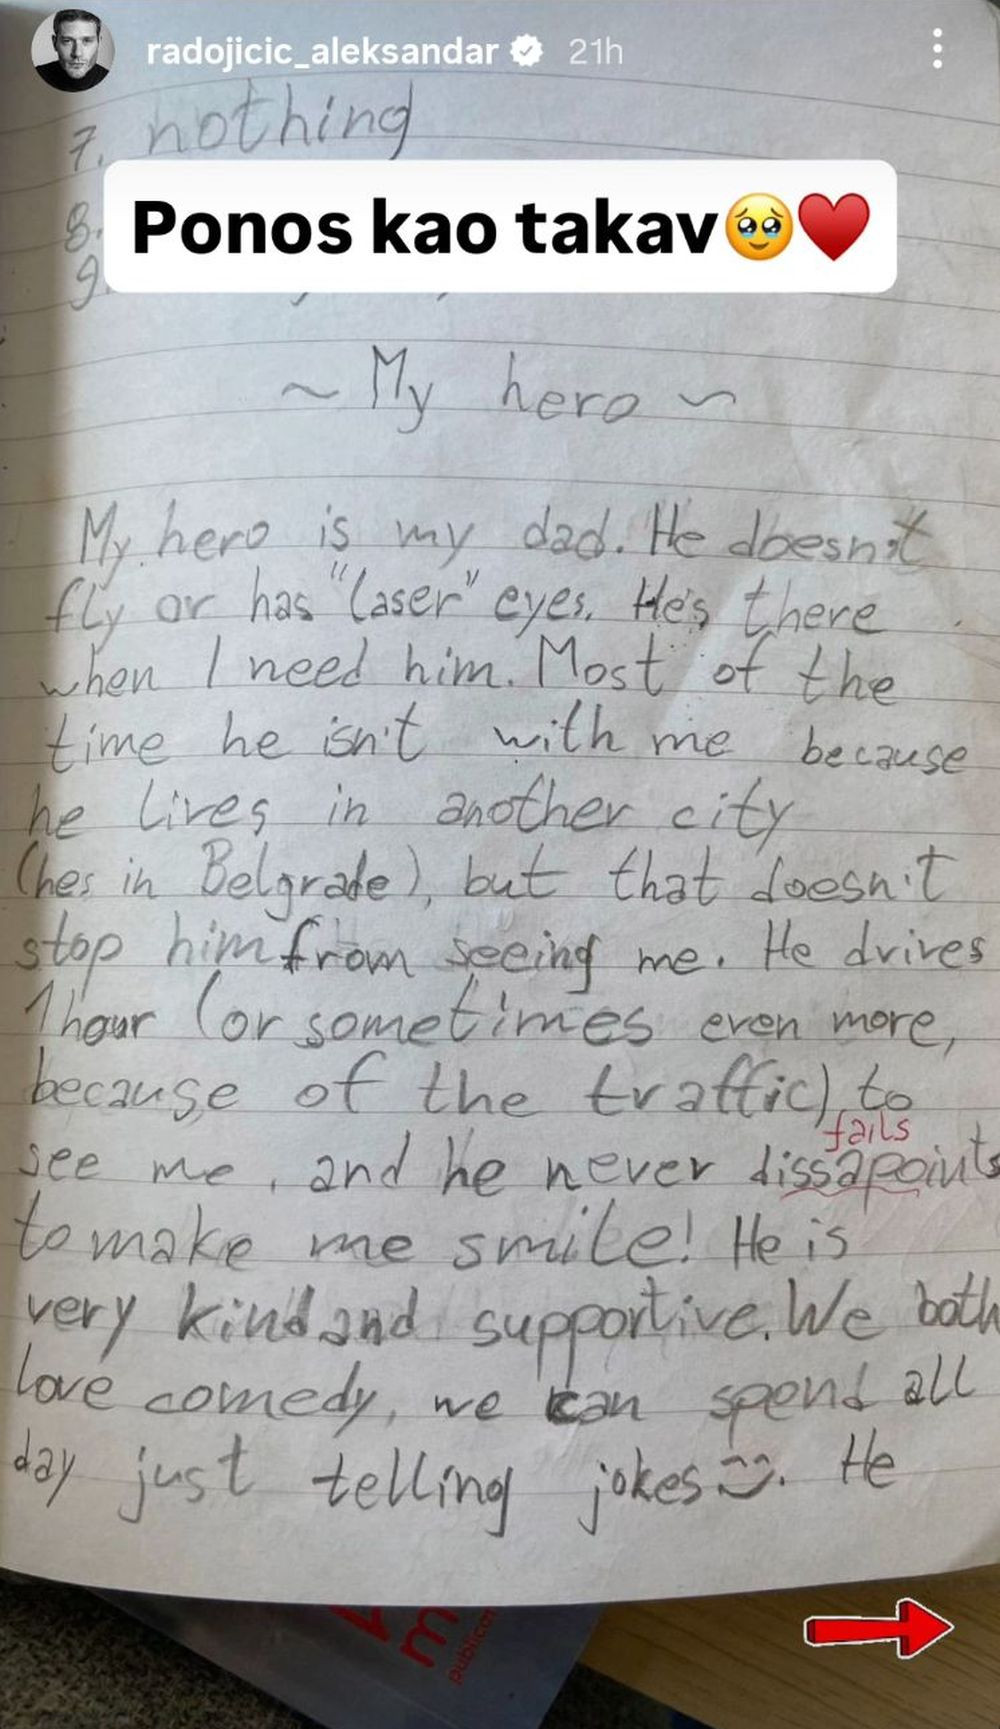 radojicic_aleksandar 21h
7. nothing
Ponos kao takav🥹❤️
8.
9.
~ My hero ~
My hero is my dad. He doesn't
fly or has "laser" eyes. He's there
when I need him. Most of the
time he isn't with me because
he lives in another city
(hes in Belgrade), but that doesn't
stop him from seeing me. He drives
1 hour (or sometimes even more,
because of the traffic) to
fails
see me, and he never dissapoints
to make me smile! He is
very kind and supportive. We both
love comedy, we can spend all
day just telling jokes. He